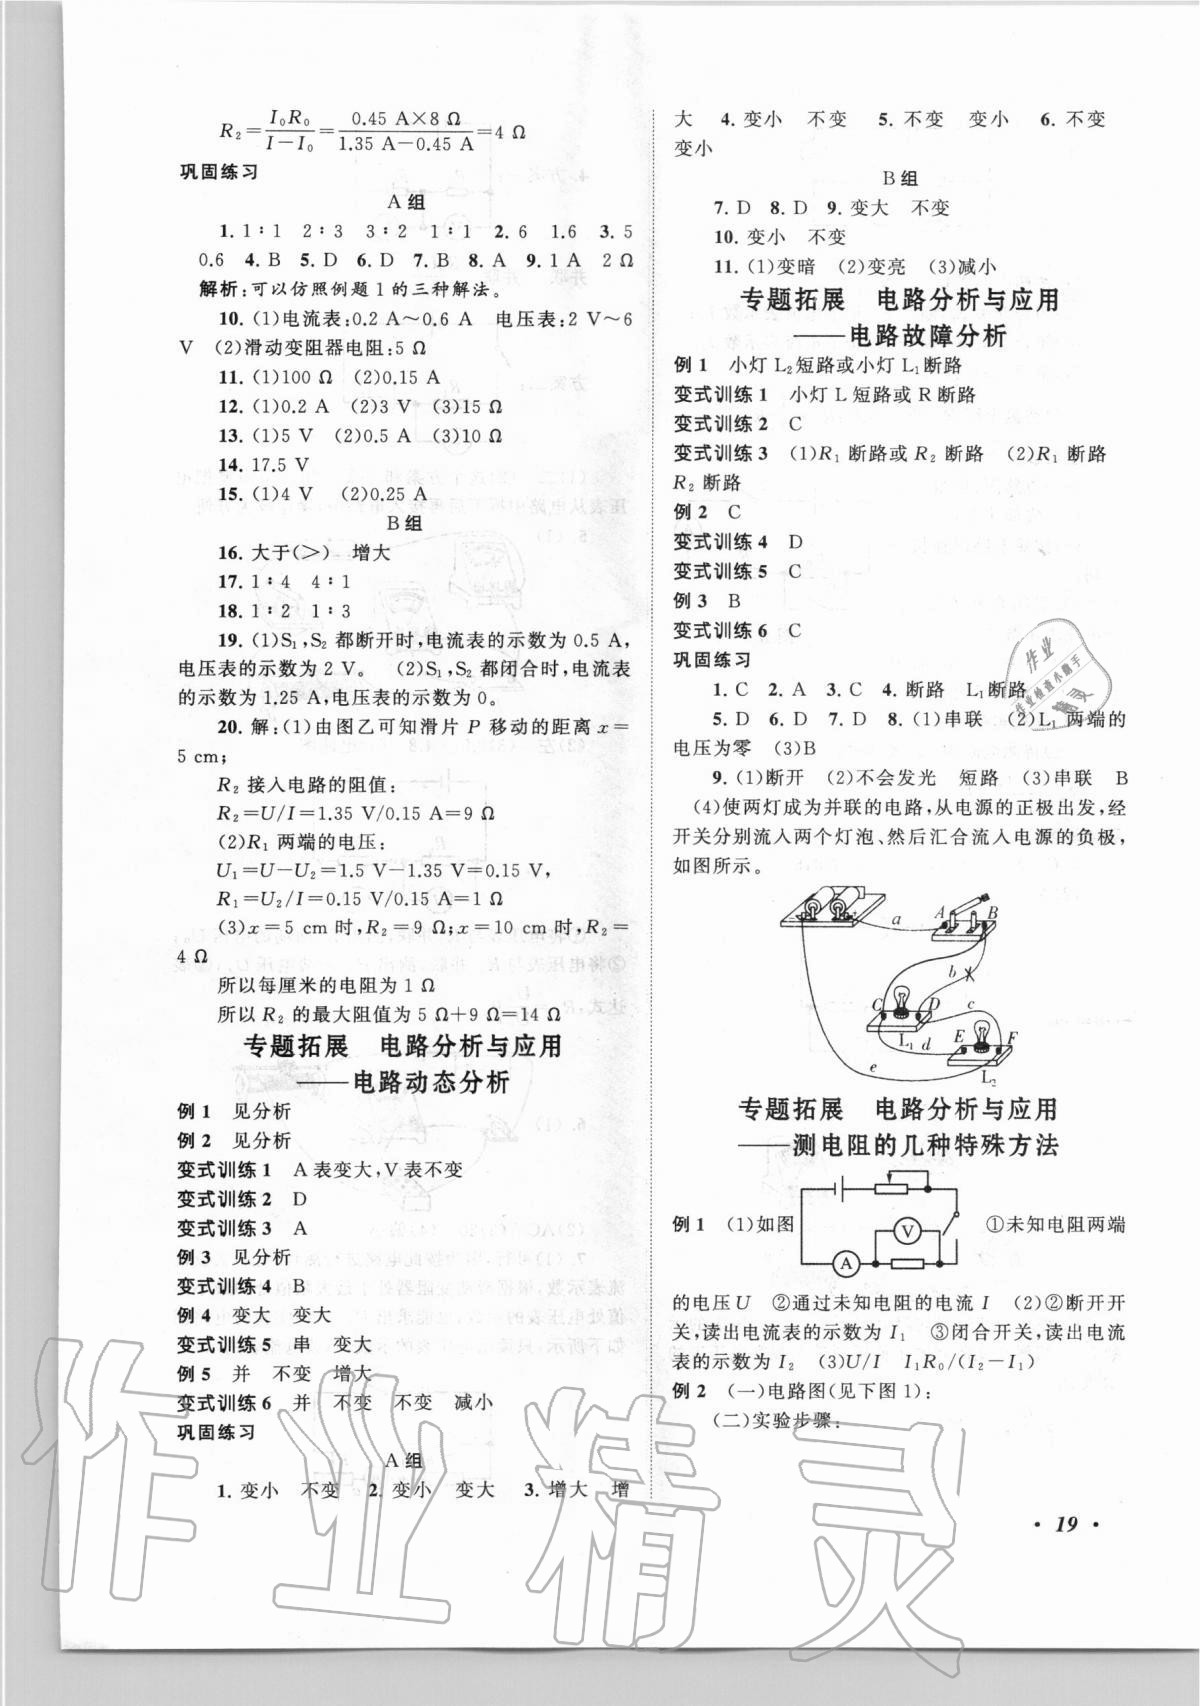 R₂=I₀R₀/(I－I₀)=0.45 A×8 Ω/(1.35 A－0.45 A)=4 Ω
巩固练习
A 组
1. 1∶1　2∶3　3∶2　1∶1　2. 6　1.6　3. 5
0.6　4. B　5. D　6. D　7. B　8. A　9. 1 A　2 Ω
解析:可以仿照例题 1 的三种解法。
10. (1)电流表:0.2 A～0.6 A　电压表:2 V～6
V　(2)滑动变阻器电阻:5 Ω
11. (1)100 Ω　(2)0.15 A
12. (1)0.2 A　(2)3 V　(3)15 Ω
13. (1)5 V　(2)0.5 A　(3)10 Ω
14. 17.5 V
15. (1)4 V　(2)0.25 A
B 组
16. 大于(＞)　增大
17. 1∶4　4∶1
18. 1∶2　1∶3
19. (1)S₁,S₂ 都断开时,电流表的示数为 0.5 A,
电压表的示数为 2 V。　(2)S₁,S₂ 都闭合时,电流表
的示数为 1.25 A,电压表的示数为 0。
20. 解:(1)由图乙可知滑片 P 移动的距离 x=
5 cm;
R₂ 接入电路的阻值:
R₂=U/I=1.35 V/0.15 A=9 Ω
(2)R₁ 两端的电压:
U₁=U－U₂=1.5 V－1.35 V=0.15 V,
R₁=U₂/I=0.15 V/0.15 A=1 Ω
(3)x=5 cm 时,R₂=9 Ω;x=10 cm 时,R₂=
4 Ω
所以每厘米的电阻为 1 Ω
所以 R₂ 的最大阻值为 5 Ω+9 Ω=14 Ω
专题拓展　电路分析与应用
——电路动态分析
例 1　见分析
例 2　见分析
变式训练 1　A 表变大,V 表不变
变式训练 2　D
变式训练 3　A
例 3　见分析
变式训练 4　B
例 4　变大　变大
变式训练 5　串　变大
例 5　并　不变　增大
变式训练 6　并　不变　不变　减小
巩固练习
A 组
1. 变小　不变　2. 变小　变大　3. 增大　增
大　4. 变小　不变　5. 不变　变小　6. 不变
变小
B 组
7. D　8. D　9. 变大　不变
10. 变小　不变
11. (1)变暗　(2)变亮　(3)减小
专题拓展　电路分析与应用
——电路故障分析
例 1　小灯 L₂ 短路或小灯 L₁ 断路
变式训练 1　小灯 L 短路或 R 断路
变式训练 2　C
变式训练 3　(1)R₁ 断路或 R₂ 断路　(2)R₁ 断路
R₂ 断路
例 2　C
变式训练 4　D
变式训练 5　C
例 3　B
变式训练 6　C
巩固练习
1. C　2. A　3. C　4. 断路　L₁断路
5. D　6. D　7. D　8. (1)串联　(2)L₁ 两端的
电压为零　(3)B
9. (1)断开　(2)不会发光　短路　(3)串联　B
(4)使两灯成为并联的电路,从电源的正极出发,经
开关分别流入两个灯泡、然后汇合流入电源的负极,
如图所示。
a　A　B
b
C　D　c
L₁　d　E　F
e　L₂
专题拓展　电路分析与应用
——测电阻的几种特殊方法
例 1　(1)如图　V　A　①未知电阻两端
的电压 U　②通过未知电阻的电流 I　(2)②断开开
关,读出电流表的示数为 I₁　③闭合开关,读出电流
表的示数为 I₂　(3)U/I　I₁R₀/(I₂－I₁)
例 2　(一)电路图(见下图 1):
(二)实验步骤:
· 19 ·
作业
作业检查小助手
精灵
作业精灵